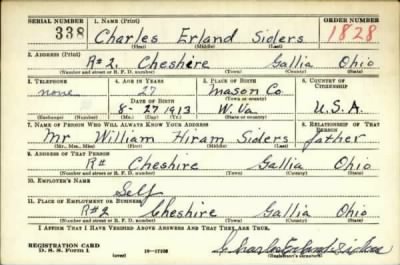 SERIAL NUMBER 1. NAME (Print) ORDER NUMBER
338 Charles Erland Siders 1828
(First) (Middle) (Last)
2. ADDRESS (Print)
R#2. Cheshire Gallia Ohio
(Number and street or R. F. D. number) (Town) (County) (State)
3. TELEPHONE 4. AGE IN YEARS 5. PLACE OF BIRTH 6. COUNTRY OF CITIZENSHIP
none 27 Mason Co.
DATE OF BIRTH (Town or county)
8-27-1913 W. Va. U.S.A.
(Exchange) (Number) (Mo.) (Day) (Yr.) (State or country)
7. NAME OF PERSON WHO WILL ALWAYS KNOW YOUR ADDRESS 8. RELATIONSHIP OF THAT PERSON
Mr William Hiram Siders father
(Mr., Mrs., Miss) (First) (Middle) (Last)
9. ADDRESS OF THAT PERSON
R# Cheshire Gallia Ohio
(Number and street or R. F. D. number) (Town) (County) (State)
10. EMPLOYER'S NAME
Self
11. PLACE OF EMPLOYMENT OR BUSINESS
R#2 Cheshire Gallia Ohio
(Number and street or R. F. D. number) (Town) (County) (State)
I AFFIRM THAT I HAVE VERIFIED ABOVE ANSWERS AND THAT THEY ARE TRUE.
REGISTRATION CARD
D. S. S. Form 1 (over) Charles Erland Siders
(Registrant's signature)